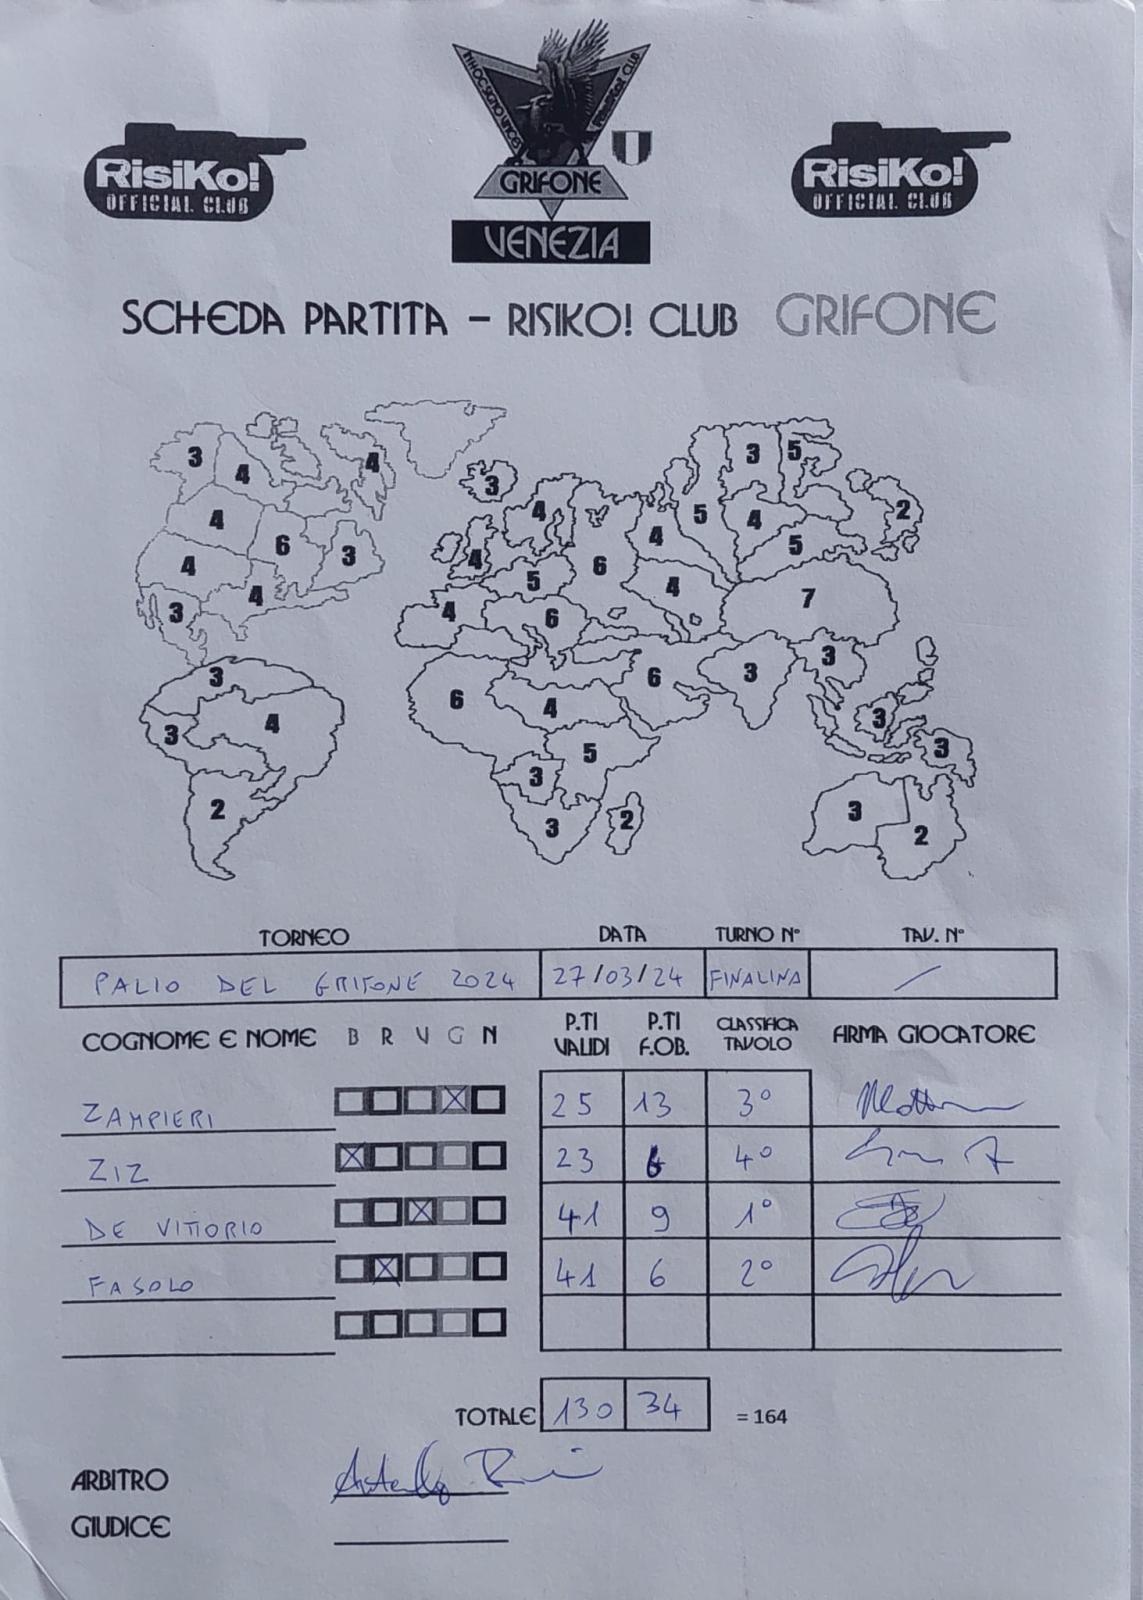 IN HOC SIGNO VINCES
RISIKO! CLUB
GRIFONE
VENEZIA
RisiKo!
OFFICIAL CLUB
RisiKo!
OFFICIAL CLUB
SCHEDA PARTITA - RISIKO! CLUB GRIFONE
3 4 4 3 3 5
4 6 3 4 4 5 4 2
4 4 4 5 6 4 5
3 4 6 7
3 6 4 6 3 3
3 4 5 3 3
2 3 3 2 3 2
TORNEO DATA TURNO N° TAV. N°
PALIO DEL GRIFONE 2024 27/03/24 FINALINA /
COGNOME E NOME B R V G N P.TI VALIDI P.TI F.OB. CLASSIFICA TAVOLO FIRMA GIOCATORE
ZAMPIERI 25 13 3°
ZIZ 23 6 4°
DE VITTORIO 41 9 1°
FASOLO 41 6 2°
TOTALE 130 34 = 164
ARBITRO
GIUDICE